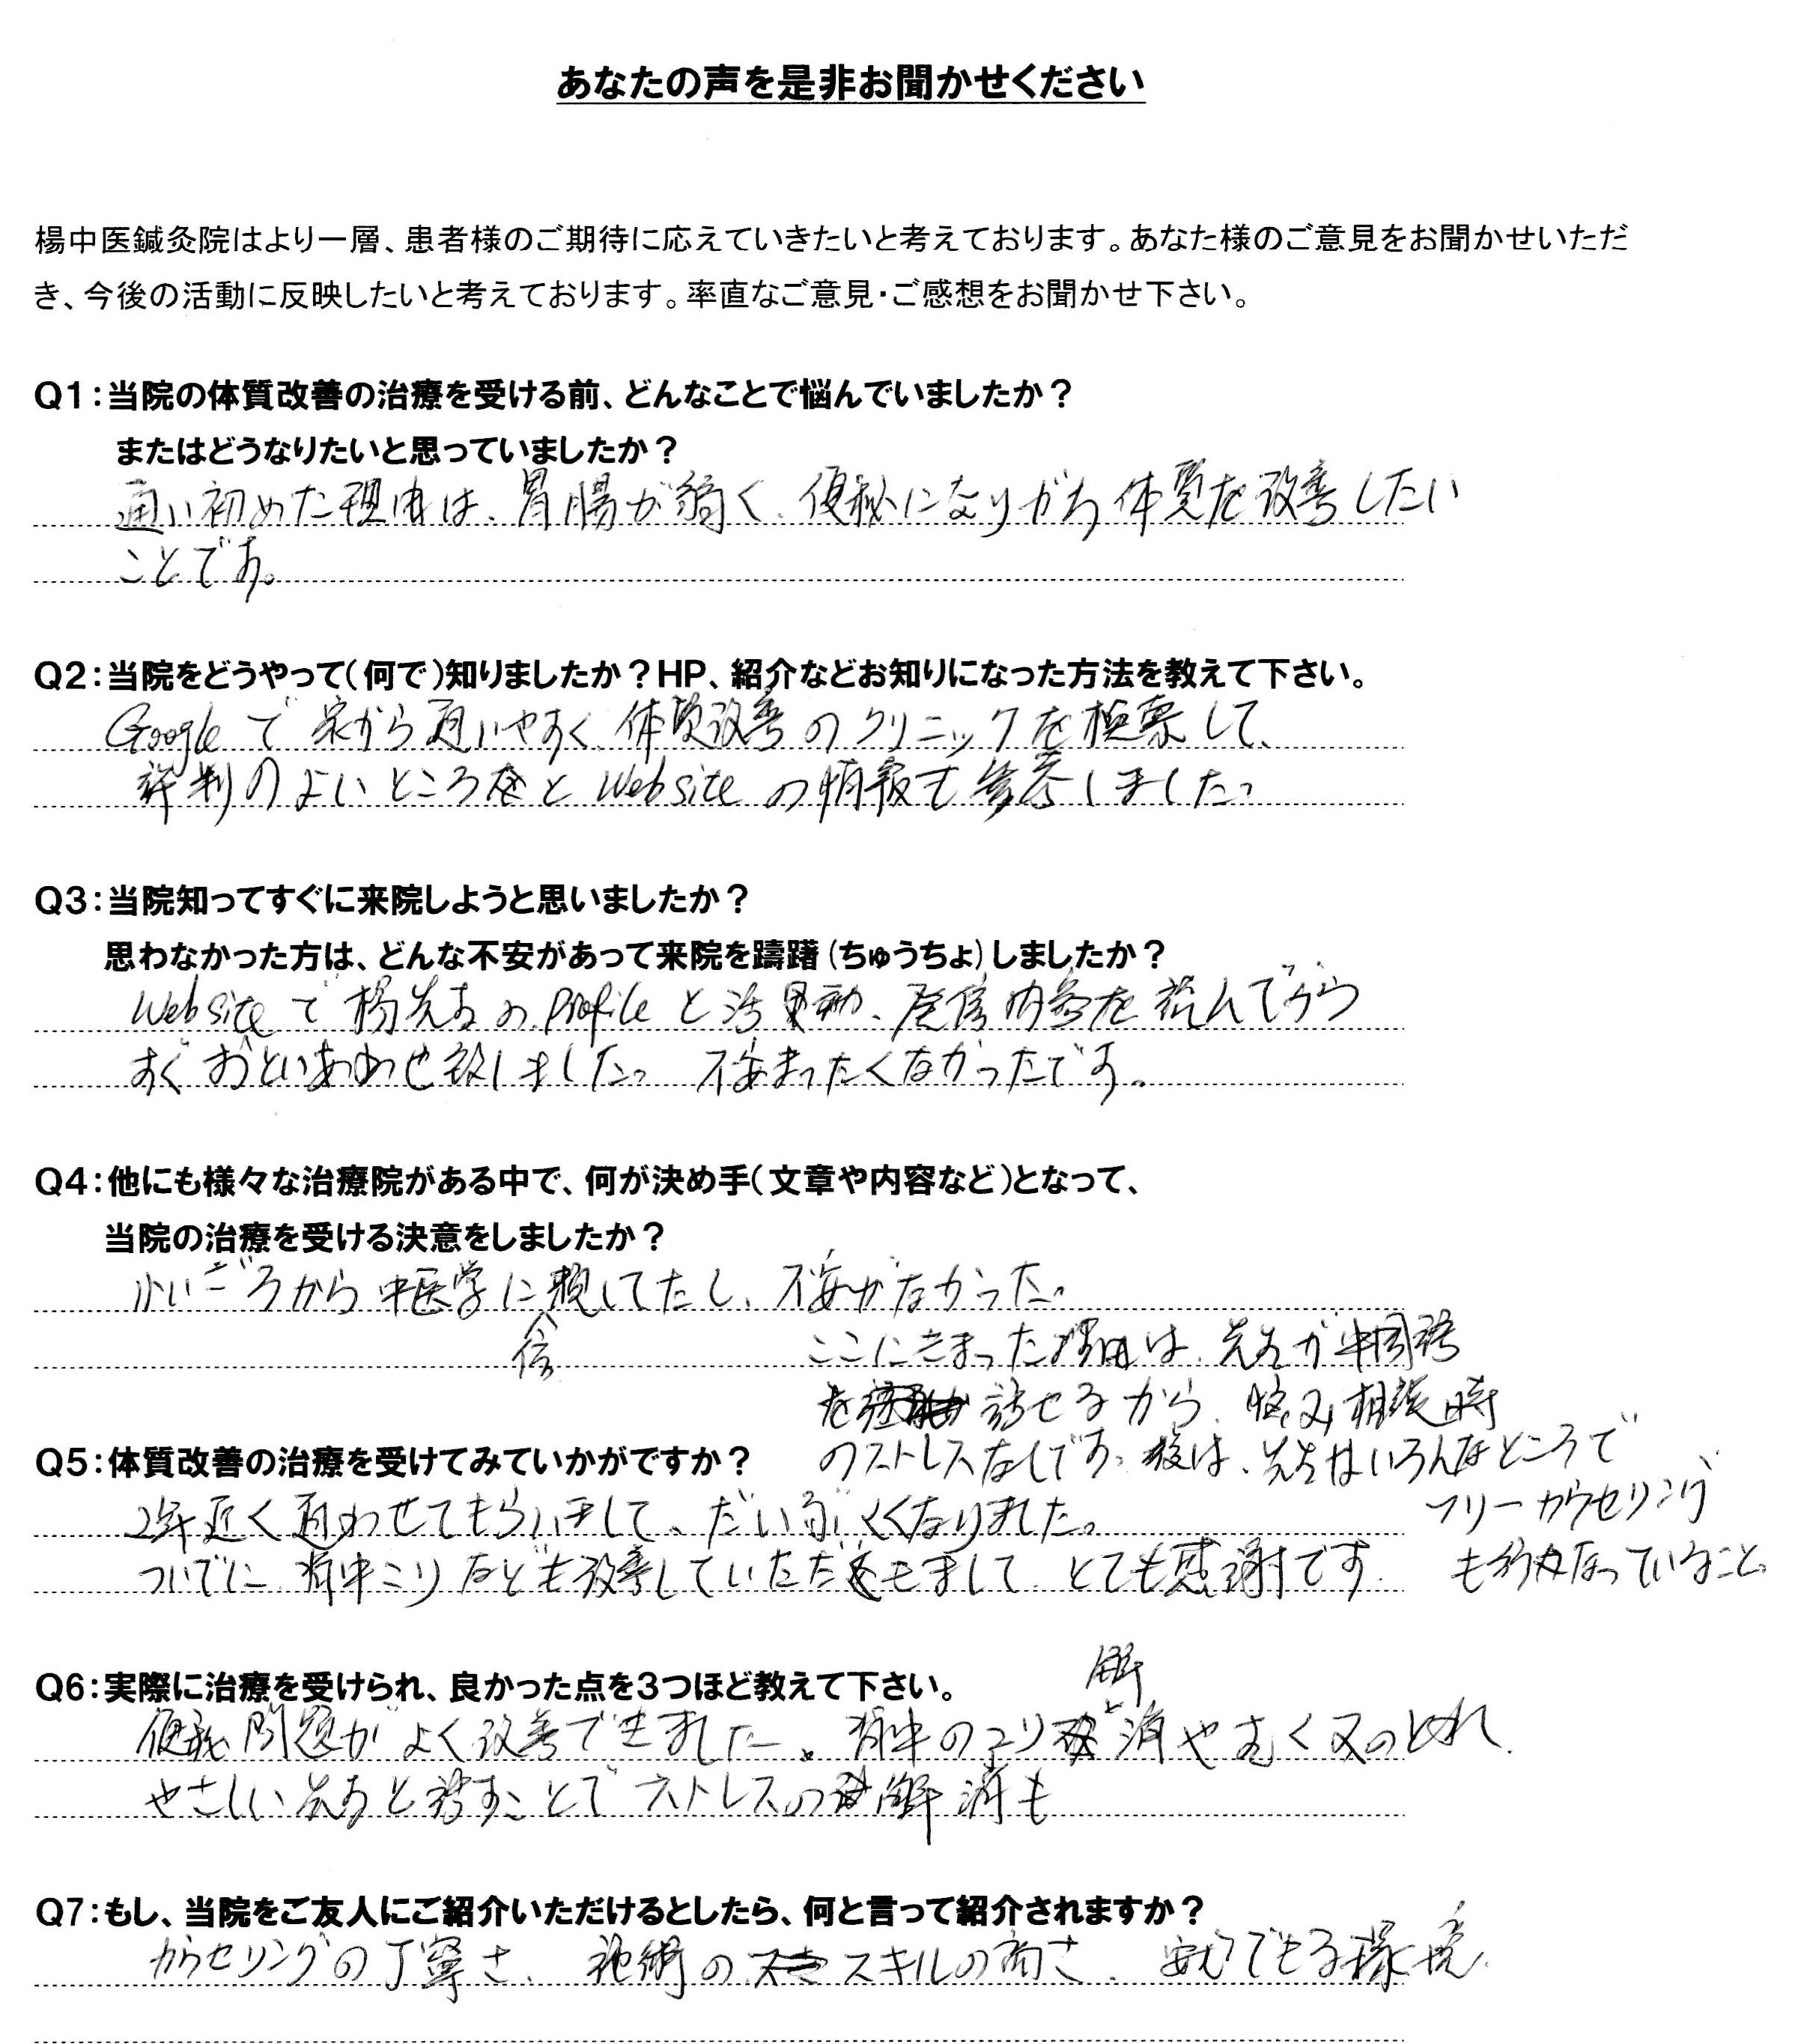 あなたの声を是非お聞かせください
楊中医鍼灸院はより一層、患者様のご期待に応えていきたいと考えております。あなた様のご意見をお聞かせいただ
き、今後の活動に反映したいと考えております。率直なご意見・ご感想をお聞かせ下さい。
Q1：当院の体質改善の治療を受ける前、どんなことで悩んでいましたか？
またはどうなりたいと思っていましたか？
通い初めた理由は、胃腸が弱く、便秘になりがち体質を改善したい
ことです。
Q2：当院をどうやって（何で）知りましたか？HP、紹介などお知りになった方法を教えて下さい。
Googleで家から通いやすく、体質改善のクリニックを検索して、
評判のよいところをと Websiteの情報も参考しました。
Q3：当院知ってすぐに来院しようと思いましたか？
思わなかった方は、どんな不安があって来院を躊躇（ちゅうちょ）しましたか？
Websiteで楊先生のProfileと活動、発信内容を読んでから
すぐおといあわせ致しました。不安まったくなかったです。
Q4：他にも様々な治療院がある中で、何が決め手（文章や内容など）となって、
当院の治療を受ける決意をしましたか？
小いごろから中医学に親信してたし、不安がなかった。
ここにきまった理由は、先生が中国語
話せるから、悩み相談時
のストレスなしです。後は、先生はいろんなところで
フリーカウセリング
も行なっていること。
Q5：体質改善の治療を受けてみていかがですか？
2年近く通わせてもらいまして、だいぶよくなりました。
ついでに、背中こりなども改善していただきまして、とても感謝です.
Q6：実際に治療を受けられ、良かった点を3つほど教えて下さい。
便秘問題がよく改善できました。背中のコリ解消やむくみのとれ、
やさしい先生と話すことでストレスの解消も
Q7：もし、当院をご友人にご紹介いただけるとしたら、何と言って紹介されますか？
カウセリングの丁寧さ、施術のスキルの高さ、安心できる環境.